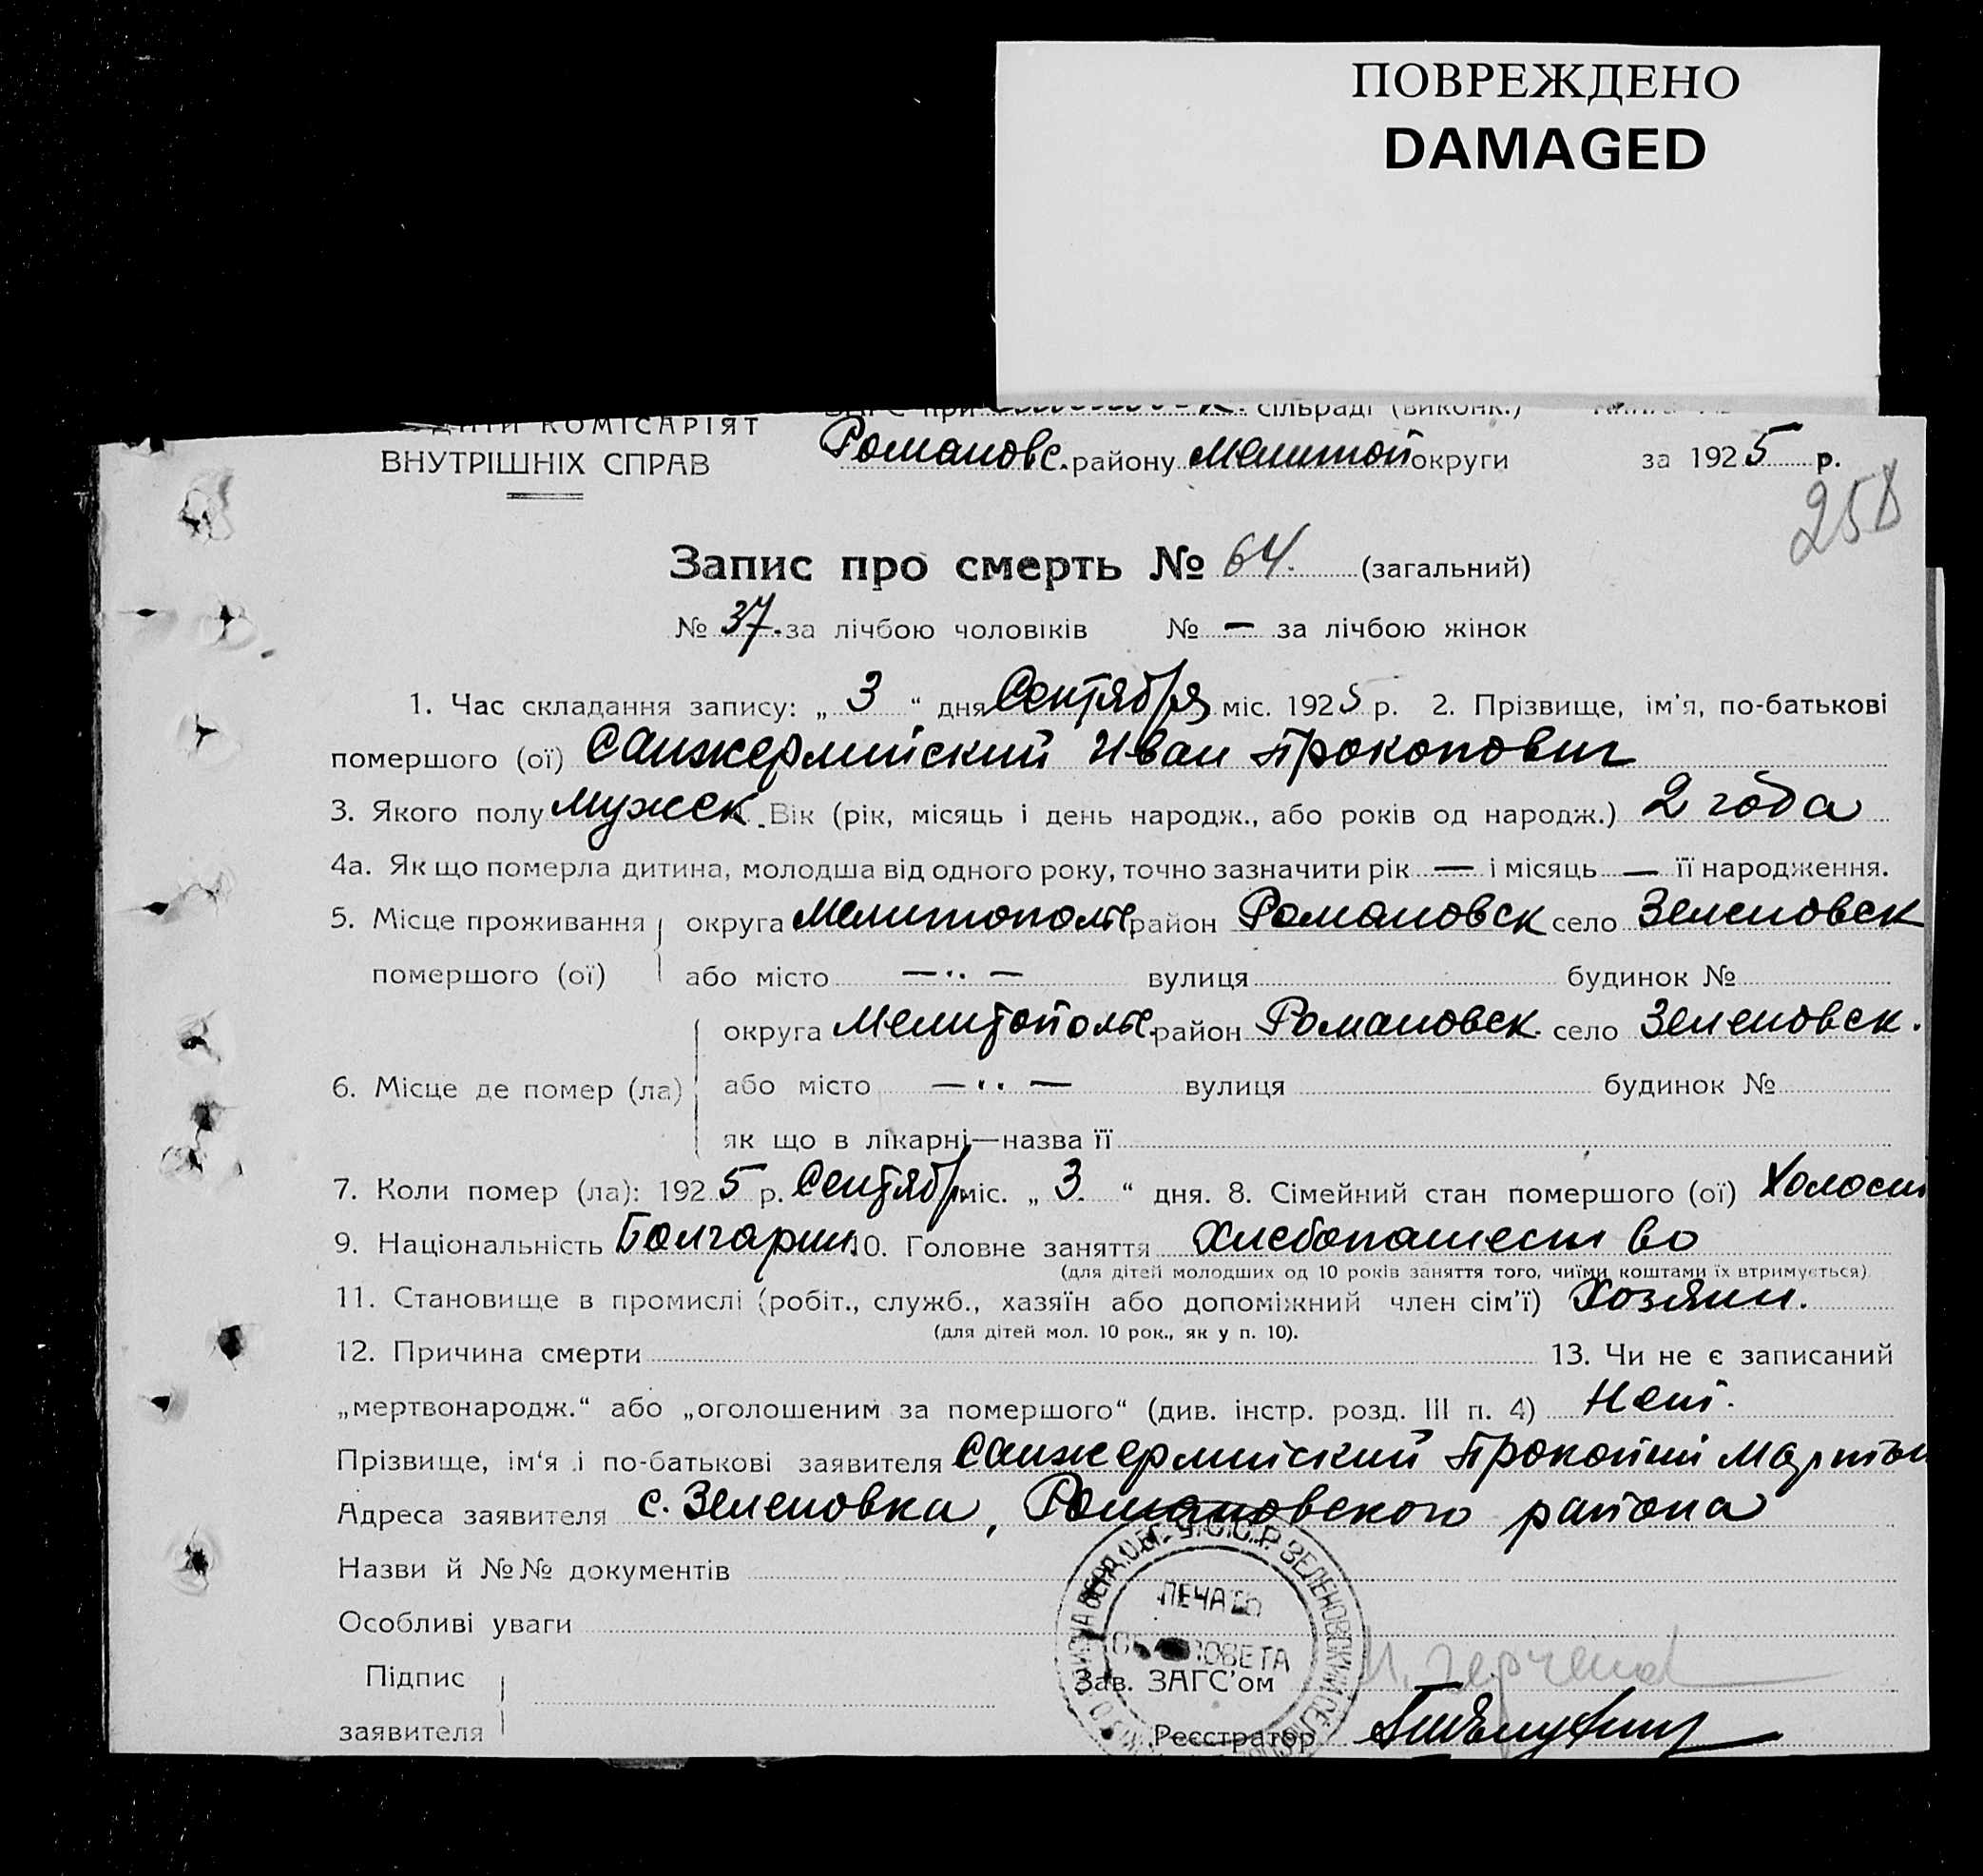 ПОВРЕЖДЕНО
DAMAGED
КОМІСАРІЯТ ЗАГС при сільраді (виконк.)
ВНУТРІШНІХ СПРАВ Романовс. району Мелитоп округи за 1925 р.
258
Запис про смерть № 64. (загальний)
№ 37. за лічбою чоловіків № — за лічбою жінок
1. Час складання запису: „ 3 “ дня Сентября міс. 1925 р. 2. Прізвище, ім'я, по-батькові
помершого (ої) Санжермийский Иван Прокопович
3. Якого полу Мужск. Вік (рік, місяць і день народж., або років од народж.) 2 года
4а. Як що померла дитина, молодша від одного року, точно зазначити рік — і місяць — її народження.
5. Місце проживання округа Мелитопольс район Романовск село Зеленовск
помершого (ої) або місто —··— вулиця будинок №
округа Мелитопольс. район Романовск. село Зеленовск.
6. Місце де помер (ла) або місто —··— вулиця будинок №
як що в лікарні—назва її
7. Коли помер (ла): 1925 р. Сентябр міс. „ 3. “ дня. 8. Сімейний стан помершого (ої) Холост
9. Національність Болгарин 10. Головне заняття Хлебопашество
(для дітей молодших од 10 років заняття того, чиїми коштами їх втримується)
11. Становище в промислі (робіт., служб., хазяїн або допоміжний член сім'ї) Хозяин.
(для дітей мол. 10 рок., як у п. 10).
12. Причина смерти 13. Чи не є записаний
„мертвонародж.“ або „оголошеним за помершого“ (див. інстр. розд. III п. 4) Нет.
Прізвище, ім'я і по-батькові заявителя Санжермийский Прокопий Мартын
Адреса заявителя с. Зеленовка, Романовского района
Назви й №№ документів
Особливі уваги
У.С.С.Р. ЗЕЛЕНОВСКИЙ
ПЕЧАТЬ
Підпис Зав. ЗАГС'ом
заявителя Реєстратор